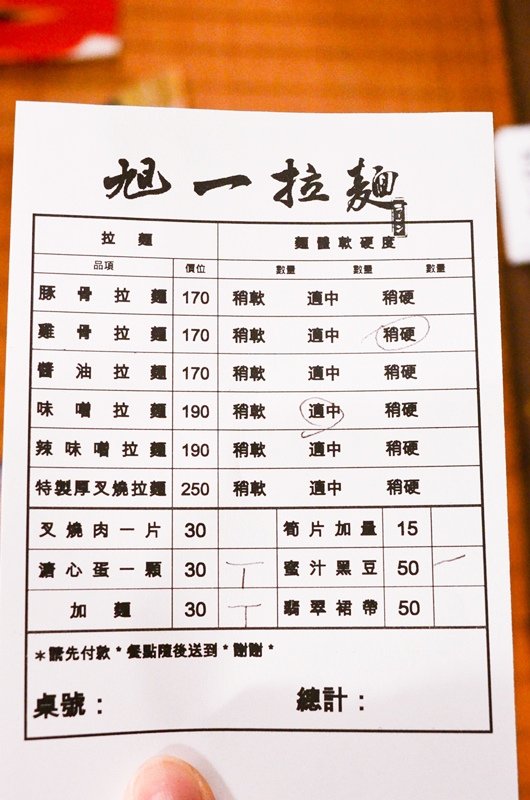 旭一拉麵
拉麵 麵體軟硬度
品項 價位 數量 數量 數量
豚骨拉麵 170 稍軟 適中 稍硬
雞骨拉麵 170 稍軟 適中 稍硬
醬油拉麵 170 稍軟 適中 稍硬
味噌拉麵 190 稍軟 適中 稍硬
辣味噌拉麵 190 稍軟 適中 稍硬
特製厚叉燒拉麵 250 稍軟 適中 稍硬
叉燒肉一片 30 筍片加量 15
溏心蛋一顆 30 蜜汁黑豆 50
加麵 30 翡翠裙帶 50
＊請先付款＊餐點隨後送到＊謝謝＊
桌號： 總計：